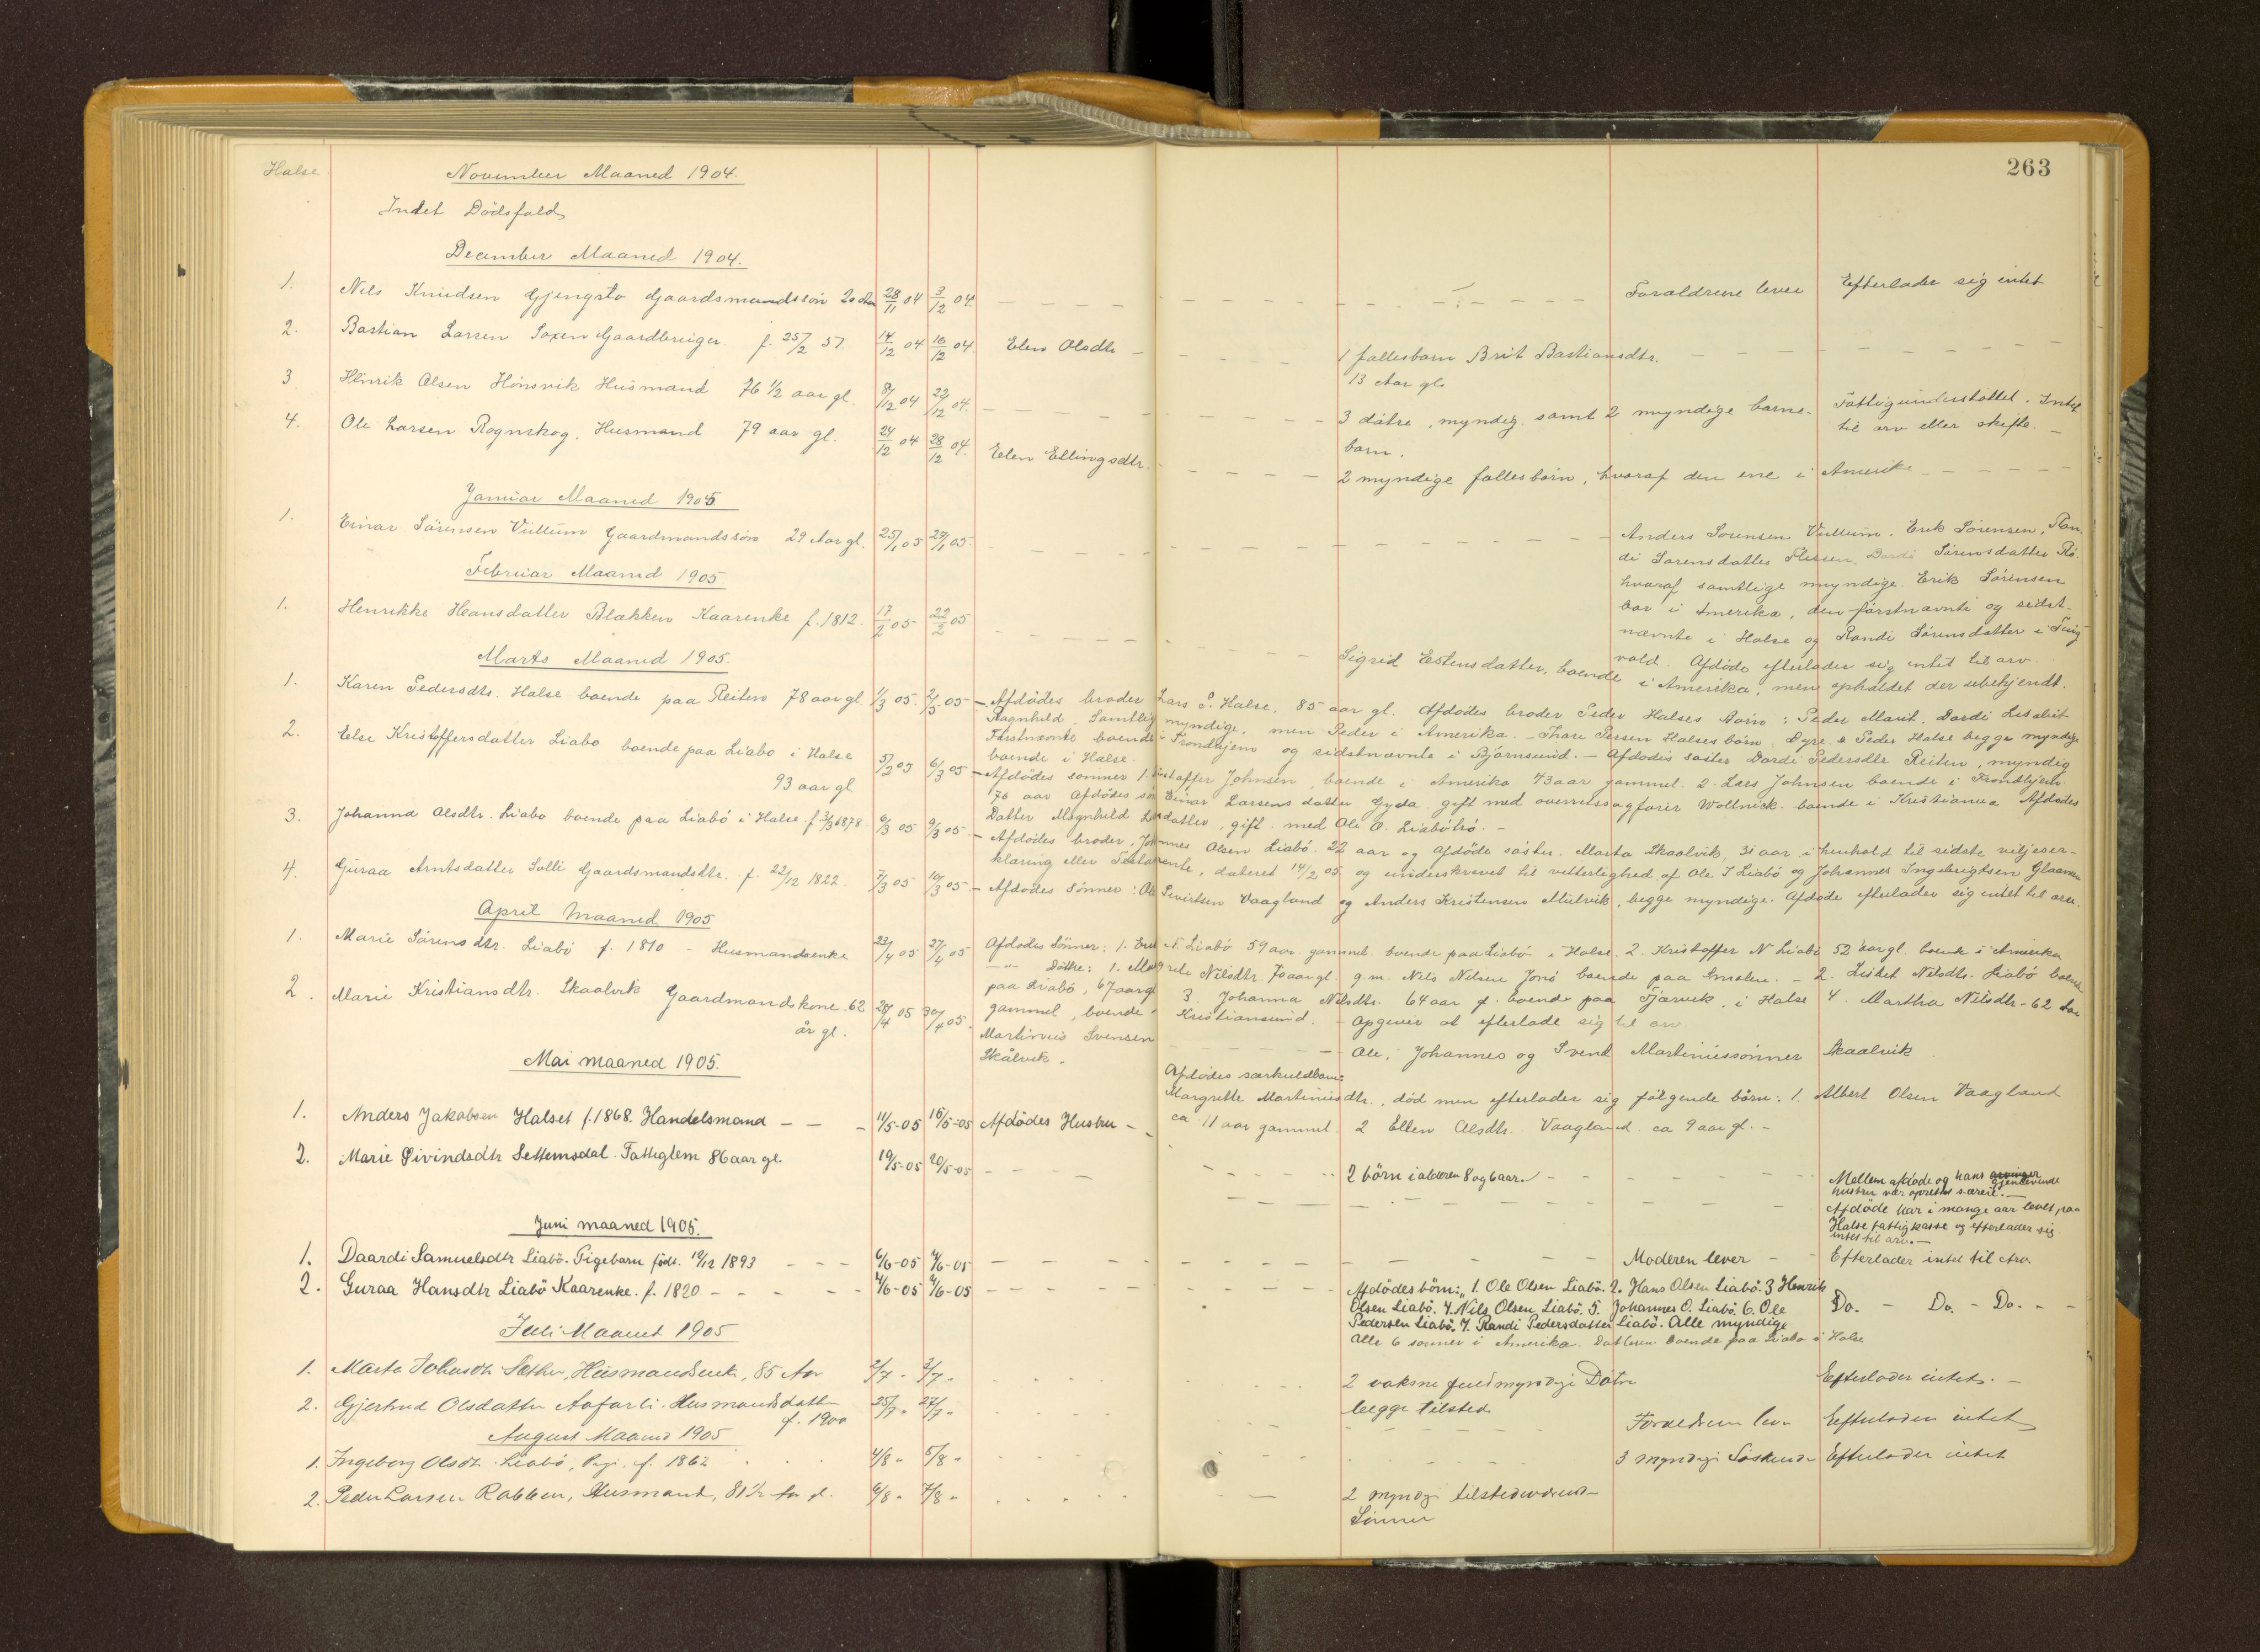 263
Halse.
November Maaned 1904.
Intet Dödsfald
December Maaned 1904.
1. Nils Knudsen Gjengstø Gaardsmandssön 20 Aar 28/11 04 3/12 04. Forældrene lever Efterlader sig intet
2. Bastian Larsen Saxen Gaardbruger f. 25/2 57. 14/12 04 16/12 04 Elen Olsdtr 1 fællesbarn Brit Bastiansdtr.
13 Aar gl.
3. Henrik Olsen Hönsvik Husmand 76 1/2 aar gl. 8/12 04 22/12 04. 3 døtre, myndig. samt 2 myndige barne- Fattigunderstøttet. Intet
barn. til arv eller skifte.
4. Ole Larsen Rognskog, Husmand 79 aar gl. 24/12 04 28/12 04. Elen Ellingsdtr. 2 myndige fællesbörn, hvoraf den ene i Amerika
Januar Maaned 1905
1. Einar Sörensen Vullum Gaardmandssön 29 Aar gl. 25/1 05 29/1 05. Anders Sörensen Vullum. Erik Sörensen, Ran-
di Sørensdatter Dordi Sörensdatter Rö.
hvoraf samtlige myndige. Erik Sörensen
bor i Amerika, den förstnævnte og sidst-
nævnte i Halse og Randi Sörensdatter i Ting
vold. Afdöde efterlader sig intet til arv.
Februar Maaned 1905.
1. Henrikke Hansdatter Blækken Kaarenke f. 1812. 17/2 05 22/2 05 Sigrid Estensdatter, boende i Amerika, men opholdet der ubekjendt.
Marts Maaned 1905.
1. Karen Pedersdtr. Halse boende paa Reiten 78 aar gl. 1/3 05. 2/5 05 - Afdödes broder Lars P. Halse. 85 aar gl. Afdödes broder Peder Halses Börn: Peder Marit, Dordi Lisabet
Ragnhild. Samtlig myndige, men Peder i Amerika. - Thore Persen Halses börn, Dyre & Peder Halse begge myndige
Förstnævnte boende i Trondhjem og sidstnævnte i Björnsund. - Afdödes söster Dordi Pedersdtr Reiten, myndig
boende i Halse.
2. Else Kristoffersdatter Liabø boende paa Liabø i Halse 5/3 05 6/3 05 - Afdödes sønner 1. Kristoffer Johnsen, boende i Amerika 73 aar gammel. 2. Lars Johnsen boende i Trondhjem
93 aar gl 76 aar Afdödes sön Einar Larsens datter Gyda gift med overretssagfører Wollnick boende i Kristiania Afdödes
Datter Magnhild Larsdatter, gift med Ole O. Liabötrö. -
3. Johanna Olsdtr. Liabø boende paa Liabö i Halse f. 3/3 1878. 6/3 05 9/3 05 - Afdödes broder, Johannes Olsen Liabö. 22 aar og Afdöde søster. Marta Skaalvik, 31 aar i henhold til sidste viljeser-
klæring eller Testamente, dateret 14/2 05 og underskrevet til vitterlighed af Ole I Liabö og Johannes Ingebrigtsen Glaamen
4. Guraa Arntsdatter Solli Gaardsmandsdtr. f. 22/12 1822. 7/3 05 10/3 05 - Afdödes sönner: Ole Sivertsen Vaagland og Anders Kristensen Mulvik, begge myndige. Afdöde efterlader sig intet til arv.
April Maaned 1905
1. Marie Sörensdtr. Liabø f. 1810 - Husmandsenke 23/4 05 27/4 05 Afdødes Sönner: 1. N. Liabø 59 aar gammel boende paa Liabø i Halse. 2. Kristoffer N Liabö 52 aar gl. boende i Amerika
-"- Döttre: 1. Magrete Nilsdtr. 70 aar gl g.m. Nils Nilsen Jonö boende paa Smølen. - 2. Lisbet Nilsdtr. Liabö boende
paa Liabö, 67 aar gl 3. Johanna Nilsdtr. 64 aar g. boende paa Fjærvik i Halse 4. Martha Nilsdtr - 62 Aar
gammel, boende i Kristiansund. - Opgives at efterlade sig til arv
2. Marie Kristiansdtr. Skaalvik Gaardmandskone 62 28/4 05 30/4 05. Martinus Svensen
år gl. Skålvik. Ole, Johannes og Svend Martinussönner Skaalvik
Afdödes særkuldbarn:
Margrethe Martinusdtr., död men efterlader sig fölgende börn: 1. Albert Olsen Vaagland
ca 11 aar gammel. 2 Ellen Olsdtr. Vaagland ca 9 aar gl. -
Mai maaned 1905.
1. Anders Jakobsen Halset f. 1868. Handelsmand 11/5-05 16/5-05 Afdödes Hustru 2 börn i alderen 8 og 6 aar. Mellem afdöde og hans arvinger gjenlevende
hustru var oprettet særeie. -
2. Marie Eivindsdtr Settemsdal. Fattiglem 86 aar gl. 19/5-05 20/5-05 Afdöde har i mange aar levet paa
Halse fattigkasse og efterlader sig
intet til arv. -
Juni maaned 1905.
1. Daardi Samuelsdtr Liabö. Pigebarn födt. 19/12 1893 6/6-05 7/6-05 Moderen lever Efterlader intet til Arv.
2. Guraa Hansdtr Liabö Kaarenke. f. 1820 4/6-05 7/6-05 Afdödes börn: 1. Ole Olsen Liabö. 2. Hans Olsen Liabö. 3 Henrik
Olsen Liabö. 4. Nils Olsen Liabö. 5. Johannes O. Liabö. 6. Ole Do. - Do. - Do. - -
Pedersen Liabö. 7. Randi Pedersdatter Liabö. Alle myndige
Alle 6 sønner i Amerika. Datteren boende paa Liabø i Halse
Juli Maaned 1905
1. Marta Johnsdtr Sæther, Husmandsenke, 85 Aar 2/7 - 3/7 - 2 voksne fuldmyndige Døtre Efterlader intet. -
begge tilsted
2. Gjertrud Olsdatter Aafarli. Husmandsdatt 25/7 " 27/7 " Forældrene lever Efterlader intet
f. 1900
August Maaned 1905
1. Ingeborg Olsdtr. Liabö, Pige. f. 1862 4/8 " 5/8 " 3 myndige Söskende Efterlader intet
2. Peder Larsen Rabben, Husmand, 81 1/2 Aar gl. 6/8 " 7/8 " 2 myndige tilstedeværende
Sönner